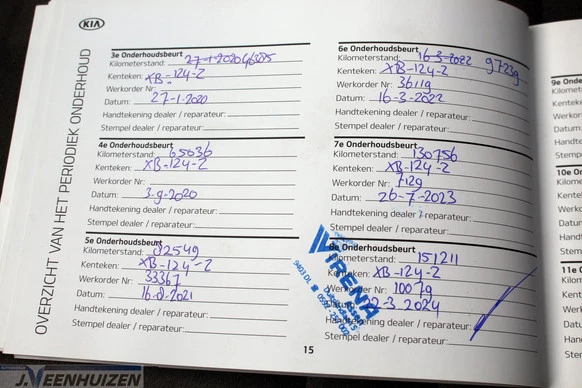 KIA
OVERZICHT VAN HET PERIODIEK ONDERHOUD
3e Onderhoudsbeurt
Kilometerstand: 27-1-2020 46325
Kenteken: XB-124-Z
Werkorder Nr:
Datum: 27-1-2020
Handtekening dealer / reparateur:
Stempel dealer / reparateur:
4e Onderhoudsbeurt
Kilometerstand: 65036
Kenteken: XB-124-Z
Werkorder Nr:
Datum: 3-9-2020
Handtekening dealer / reparateur:
Stempel dealer / reparateur:
5e Onderhoudsbeurt
Kilometerstand: 82549
Kenteken: XB-124-Z
Werkorder Nr: 33367
Datum:
Handtekening dealer / reparateur:
Stempel dealer / reparateur:
6e Onderhoudsbeurt
Kilometerstand: 16-3-2022 97239
Kenteken: XB-124-Z
Werkorder Nr: 36119
Datum: 16-3-2022
Handtekening dealer / reparateur:
Stempel dealer / reparateur:
7e Onderhoudsbeurt
Kilometerstand: 130756
Kenteken: XB-124-Z
Werkorder Nr: 7129
Datum: 26-7-2023
Handtekening dealer / reparateur:
Stempel dealer / reparateur:
8e Onderhoudsbeurt
Kilometerstand: 151211
Kenteken: XB-124-Z
Werkorder Nr: 10079
Datum: 12-3-2024
Handtekening dealer / reparateur:
Stempel dealer / reparateur:
TRENTA
Assen
15
9e On
Kilomet
Kentek
Werko
Datum
Hand
Stem
10e O
Kilom
Kent
Wer
Dat
Ha
Ste
11e O
Kil
Ke
J.VEENHUIZEN